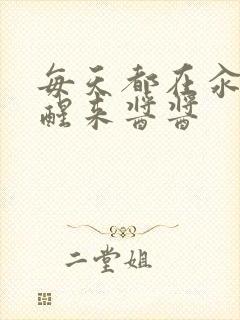 每天都在汆
醒来酱酱
二堂姐